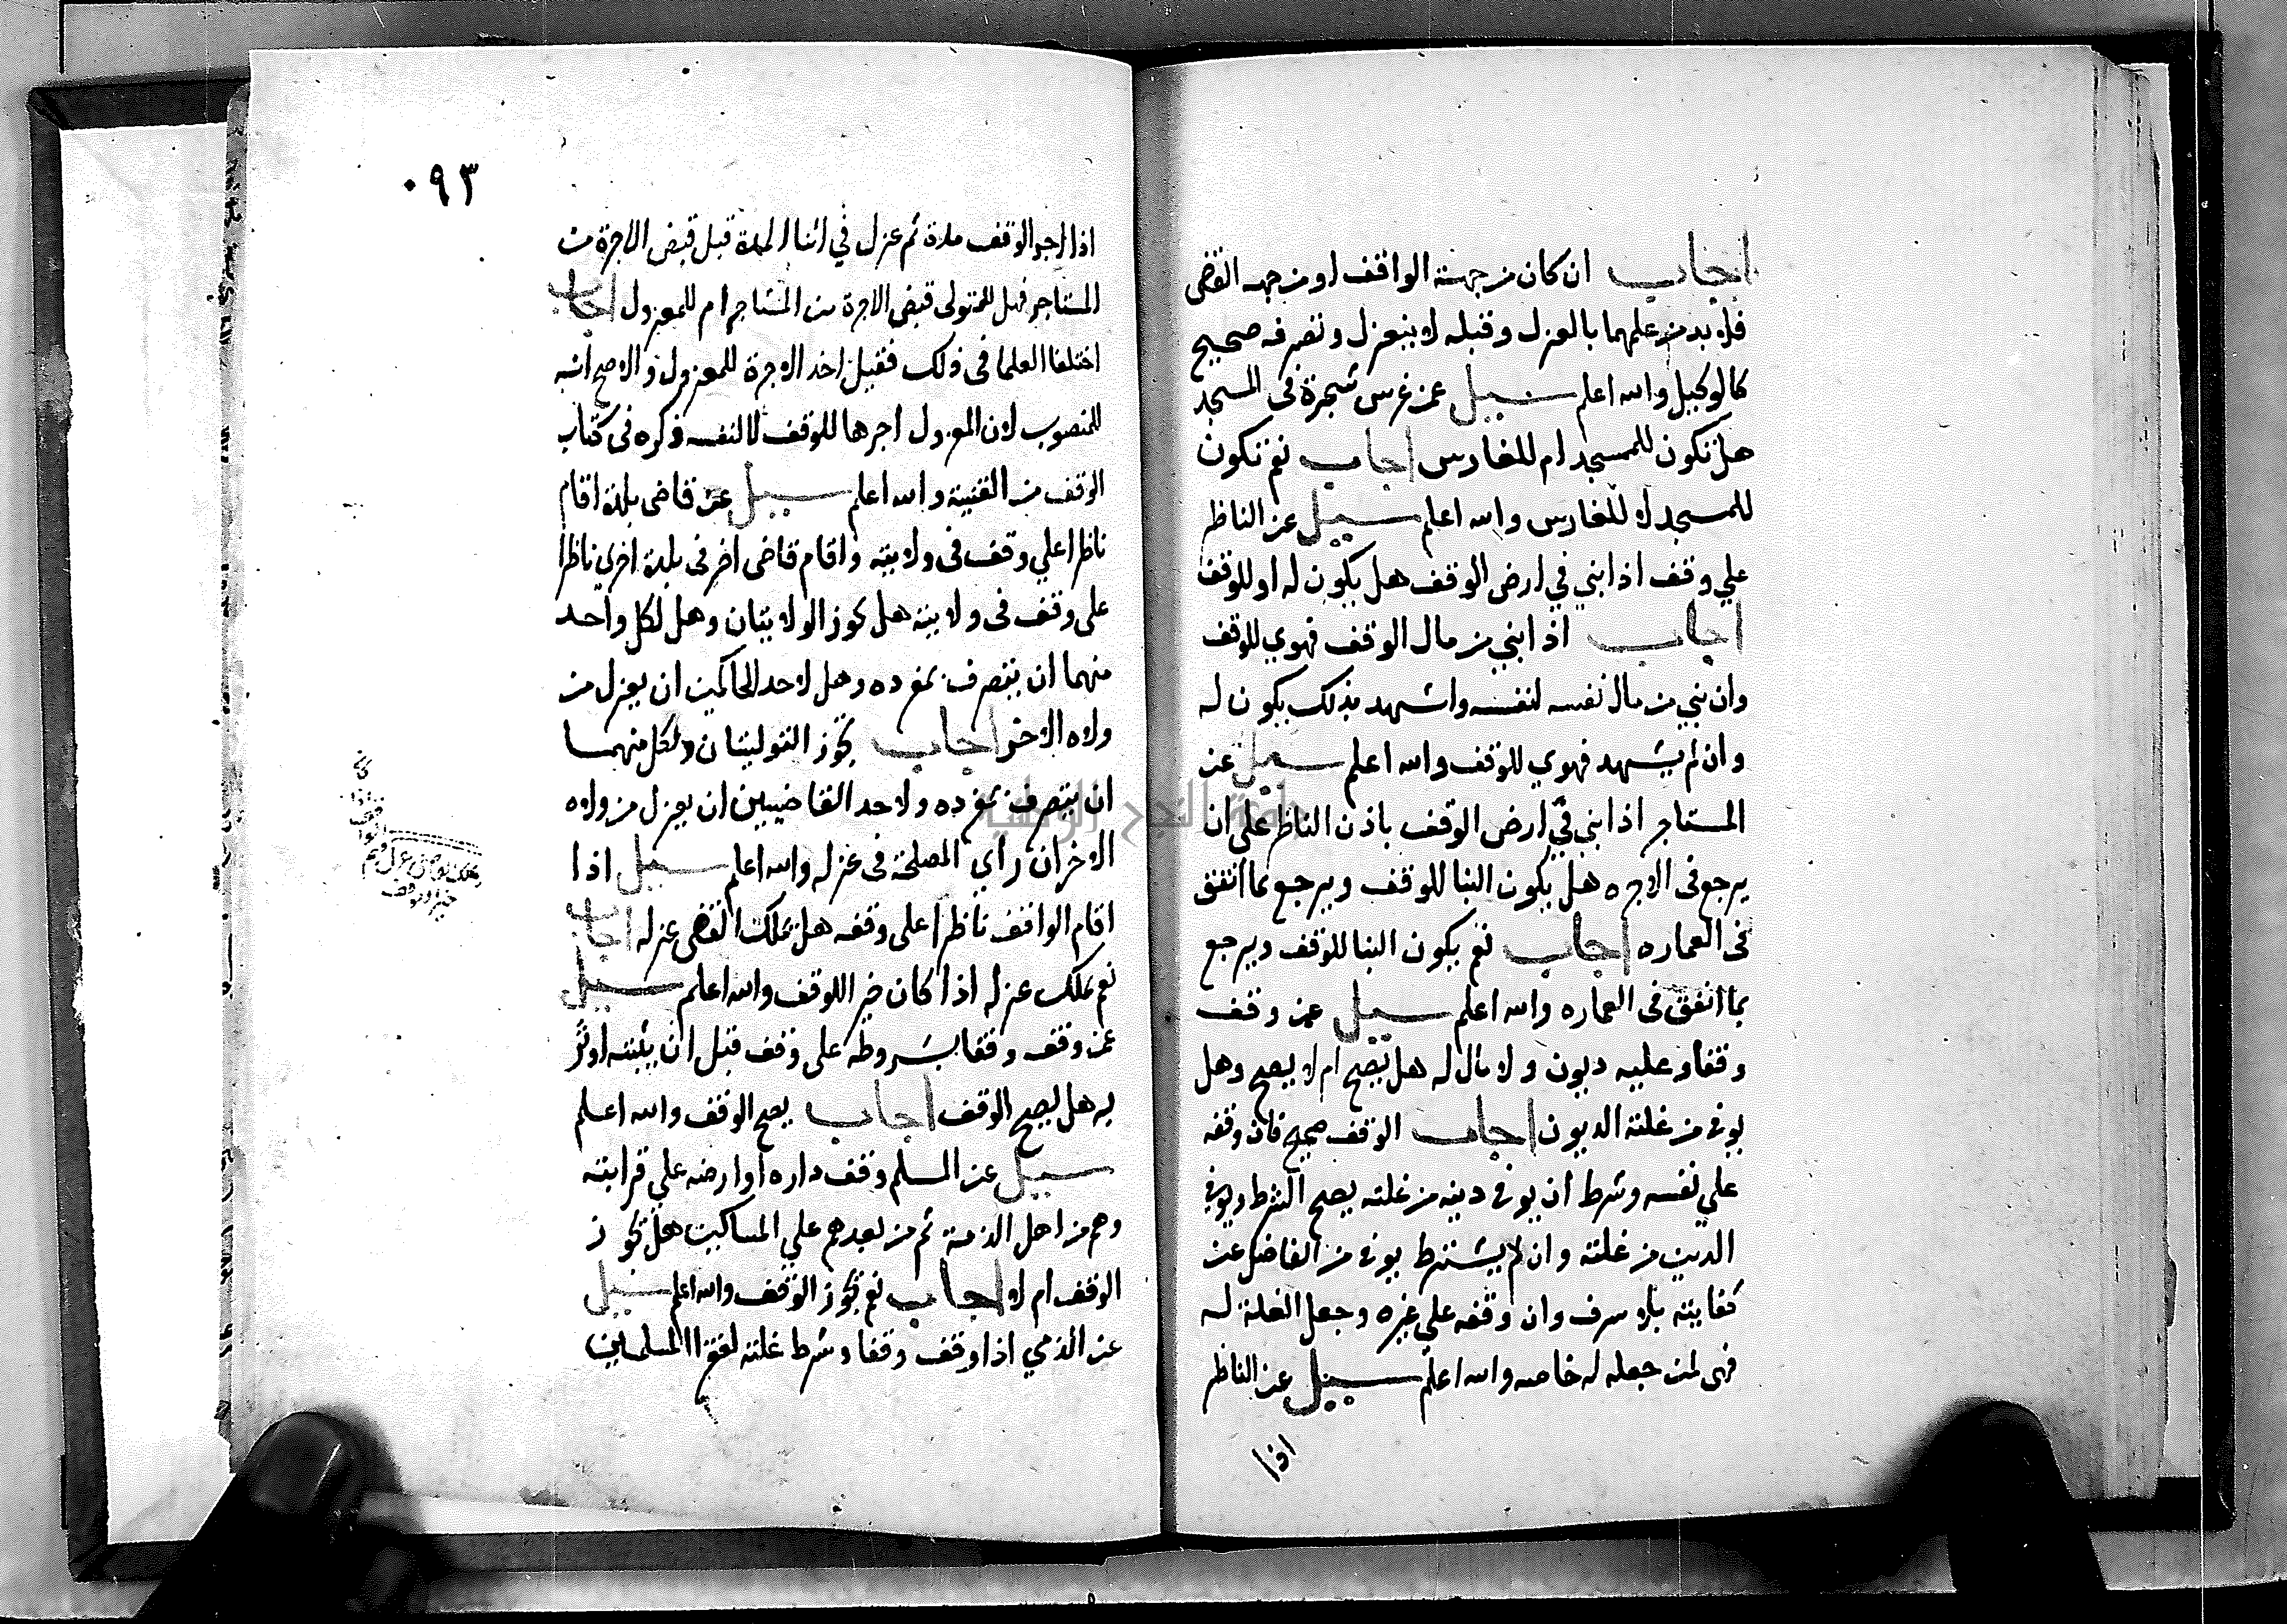 اجاب ان كان من جهة الواقف او من جهة القضى
فلا بد من علمهما بالعزل وقبله لا ينعزل وتصرفه صحيح
كالوكيل والله اعلم سيل عمن غرس شجرة فى المسجد
هل تكون للمسجد ام للغارس اجاب نعم تكون
للمسجد لا للغارس والله اعلم سيل عن الناظر
علي وقف اذا بني في ارض الوقف هل يكون له او للوقف
اجاب اذا بني من مال الوقف فهوي للوقف
وان بني من مال نفسه لنفسه واشهد بذلك يكون له
وان لم يشهد فهوي للوقف والله اعلم سيل عن
المستاجر اذا بني في ارض الوقف باذن الناظر على ان
يرجع فى الاجره هل يكون البنا للوقف ويرجع بما انفق
فى العماره اجاب نعم يكون البنا للوقف ويرجع
بما انفق فى العماره والله اعلم سيل عمن وقف
وقفا وعليه ديون ولا مال له هل يصح ام لا يصح وهل
يوفى من غلته الديون اجاب الوقف صحيح فان وقفه
علي نفسه وشرط ان يوفى دينه من غلته يصح الشرط ويوفى
الدين من غلته وان لم يشترط يوفى من الفاضل عن
كفايته بلا سرف وان وقفه علي غيره وجعل الغلة له
فهى لمن جعله له خاصه والله اعلم سيل عن الناظر
اذا
٠٩٣
اذا اجر الوقف مدة ثم عزل في اثنا المدة قبل قبض الاجرة من
المستاجر فهل للمتولى قبض الاجرة من المستاجر ام للمعزول اجاب
اختلفا العلما فى ذلك فقيل اخذ الاجرة للمعزول والاصح انه
للمنصوب لان المعزول اجرها للوقف لا لنفسه ذكره فى كتاب
الوقف من القنية والله اعلم سيل عن قاضى بلدة اقام
ناظرا علي وقف فى ولايته واقام قاضى اخر فى بلدة اخري ناظرا
على وقف فى ولايته هل تجوز الولايتان وهل لكل واحد
منهما ان يتصرف بمفرده وهل لاحد الحاكمين ان يعزل من
ولاه الاخر اجاب تجوز التوليتان ولكل منهما
ان يتصرف بمفرده ولاحد القاضيين ان يعزل من ولاه
الاخر ان راي المصلحة فى عزله والله اعلم سيل اذا
اقام الواقف ناظرا على وقفه هل يملك القضى عزله اجاب
نعم يملك عزله اذا كان خيرا للوقف والله اعلم سيل
عمن وقف وقفا بشروطه على وقف قبل ان يثبته او
به هل يصح الوقف اجاب يصح الوقف والله اعلم
سيل عن المسلم وقف داره او ارضه علي قرابته
وهم من اهل الذمة ثم من بعدهم علي المساكين هل تجوز
الوقف ام لا اجاب نعم تجوز الوقف والله اعلم سيل
عن الذمي اذا وقف وقفا وشرط غلته لفقرا المسلمين